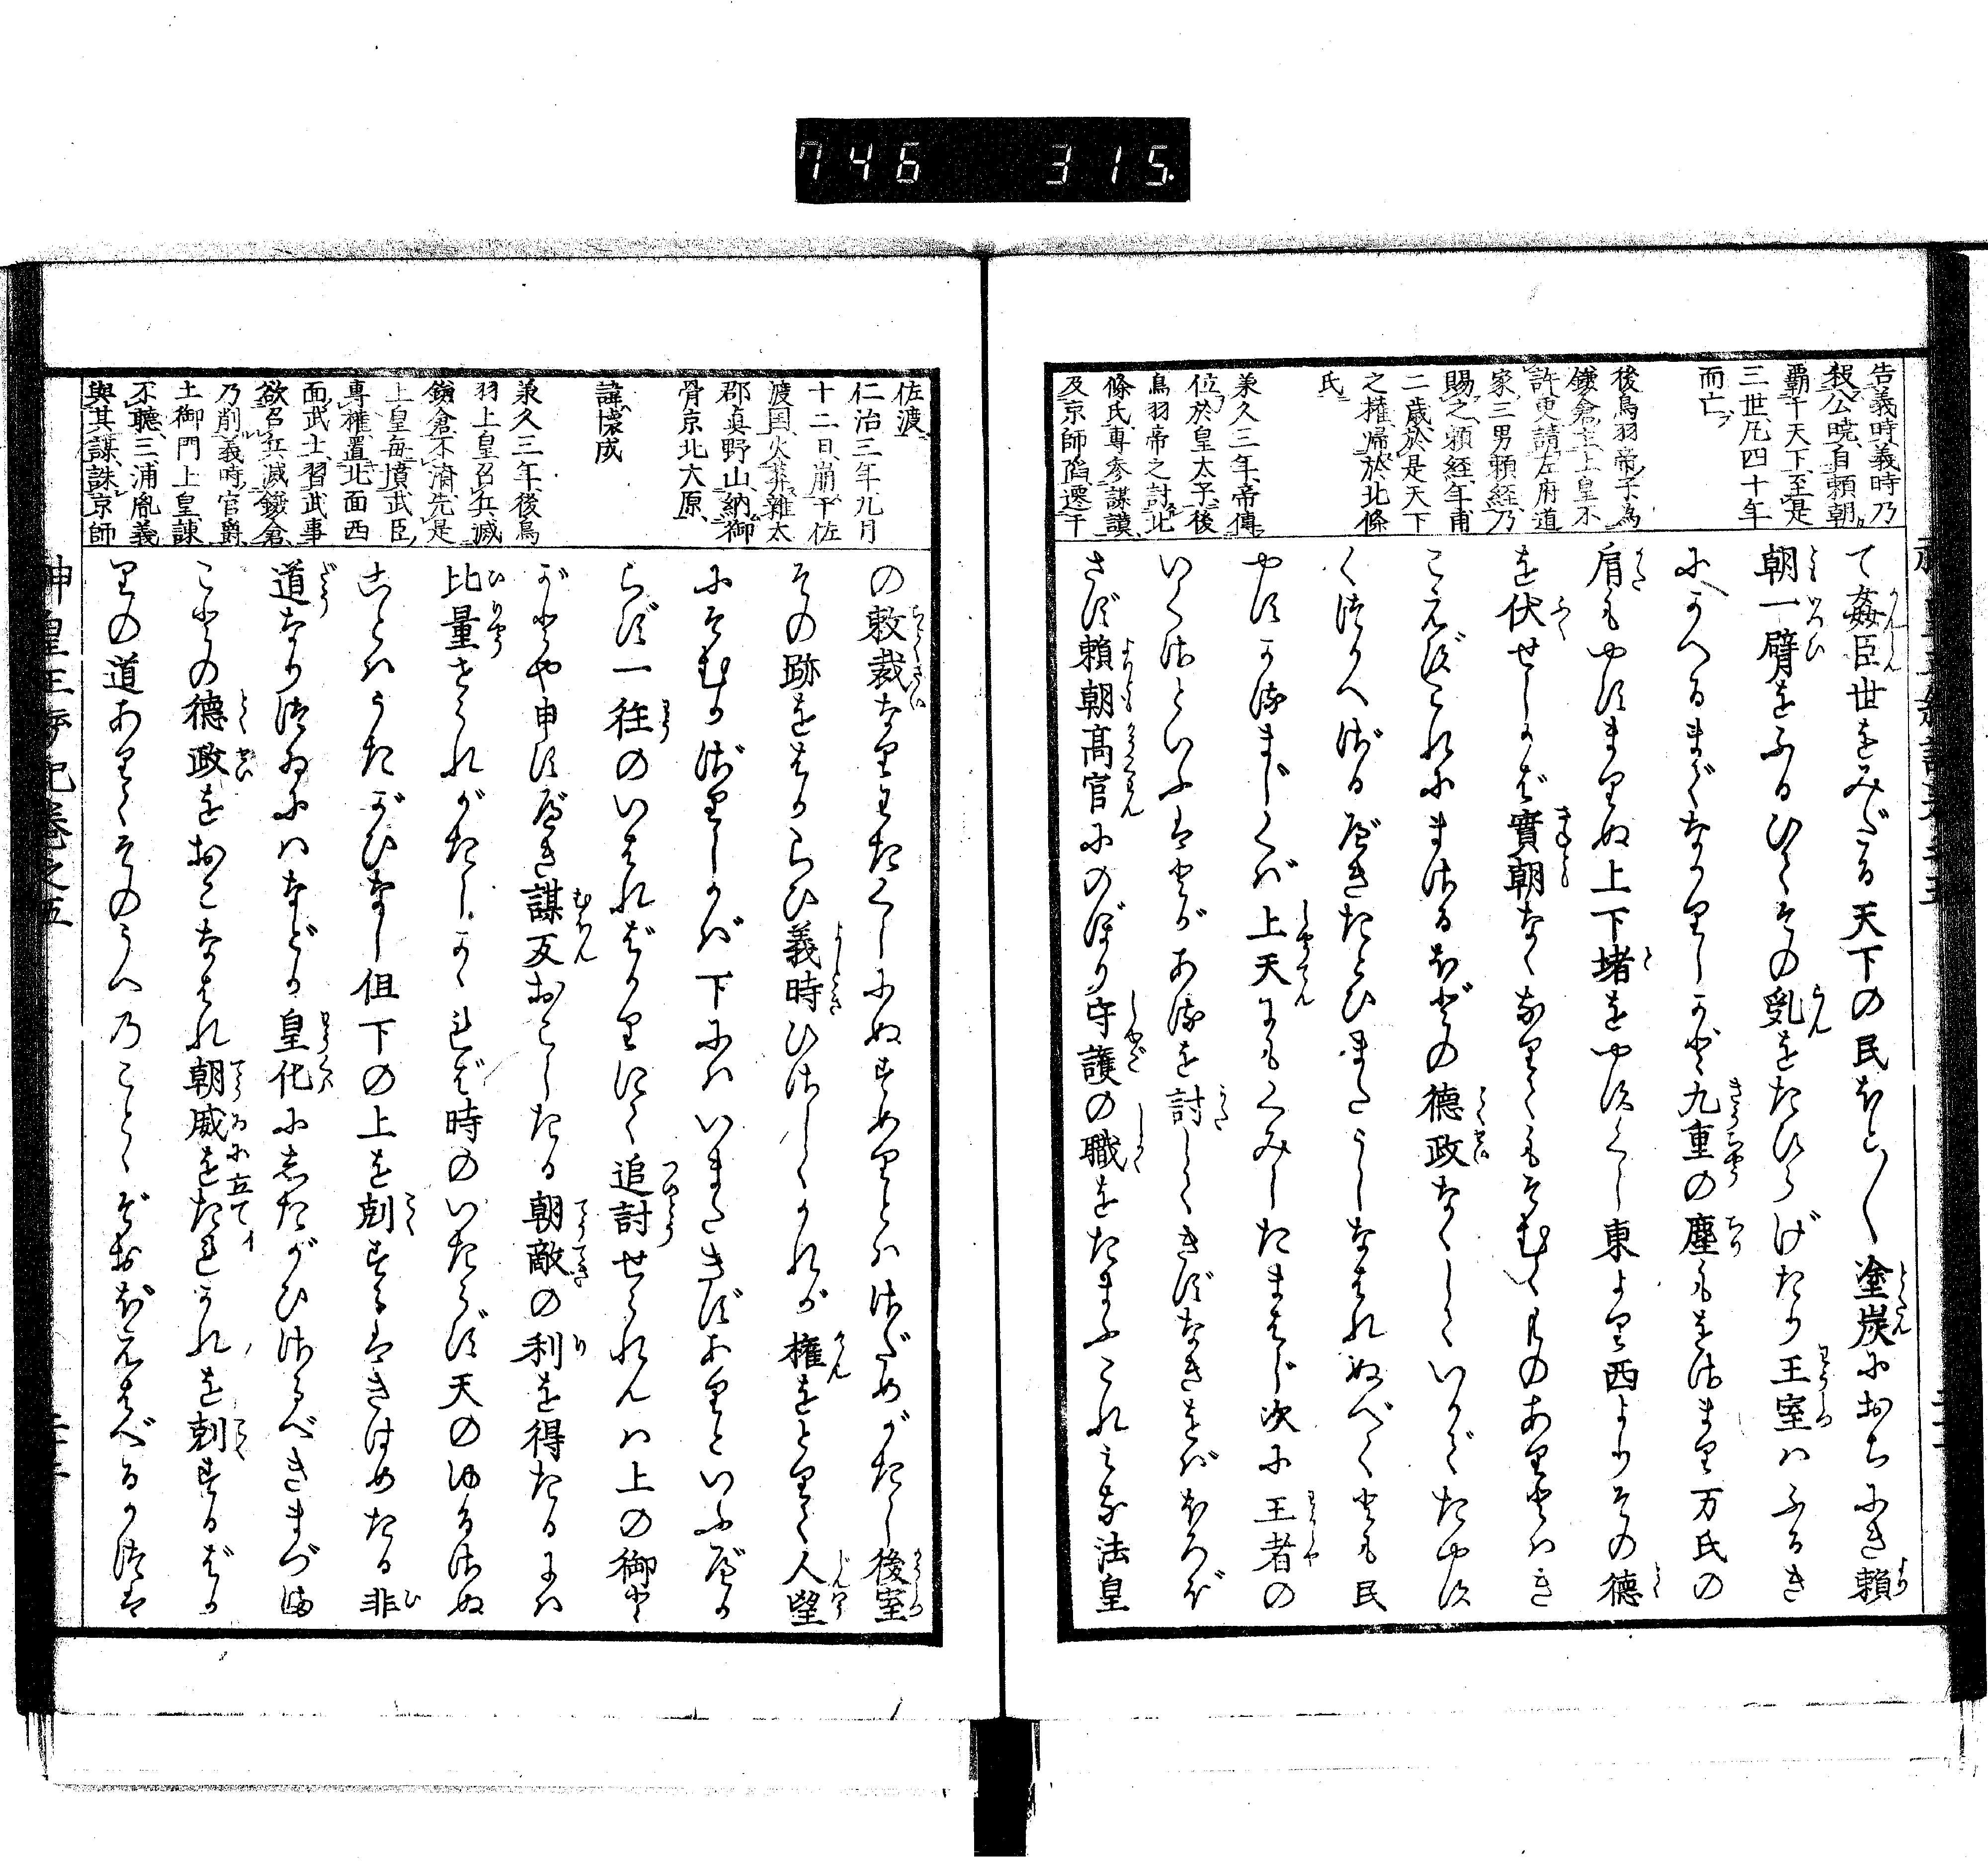 746 315.
告義時義時乃
殺公曉自頼朝
覇于天下至是
三世凡四十年
而亡
後鳥羽帝子為
鎌倉主上皇不
許更請左府道
家三男頼経乃
賜之頼経年甫
二歳於是天下
之権帰於北條
氏
兼久三年帝傳
位於皇太子後
鳥羽帝之討北
條氏専参謀議
及京師陥遷于
て姦臣世をみだる天下の民ほと〳〵塗炭におちにき頼
朝一臂をふるひてその乱をたひらげたり王室はふるき
にかへるまでなかりしかど九重の塵もをさまり万民の
肩もやすまりぬ上下堵をやすくし東より西よりその徳
を伏せしかば實朝なくなりてもそむく者ありとはき
こえずこれにまさるほどの徳政なくしていかでたやす
くくつがへさるべきたとひまたうしなはれぬべくとも民
やすかるまじくば上天よもくみしたまはじ次に王者の
いくさといふはとがあるを討してきずなきをばほろぼ
さず頼朝高官にのぼり守護の職をたまふこれみな法皇
佐渡
仁治三年九月
十二日崩于佐
渡国火葬雑太
郡真野山納御
骨京北大原
諱懐成
兼久三年後鳥
羽上皇召兵滅
鎌倉不済先是
上皇毎憤武臣
専権置北面西
面武士習武事
欲召兵滅鎌倉
乃削義時官爵
土御門上皇諌
不聴三浦胤義
與其謀誅京師
の敕裁なりわたくしにぬすめりとはさだめがたし後室
その跡をはからひ義時ひさしくかれが権をとりて人望
にそむかざりしかば下にはいまだきずありといふべか
らず一往のいはればかりにて追討せられんは上の御と
がとや申すべき謀反おこしたる朝敵の利を得たるには
比量せられがたしかゝれば時のいたらず天のゆるさぬ
ことはうたがひなし但下の上を剋するはきはめたる非
道なりつゐにはなどか皇化にしたがひさるべきまづま
ことの徳政をおこなはれ朝威をたてかれを剋するばか
に立てイ
りの道ありてそのうへのことゝぞおぼえはべるかつは
神皇正統記巻之五